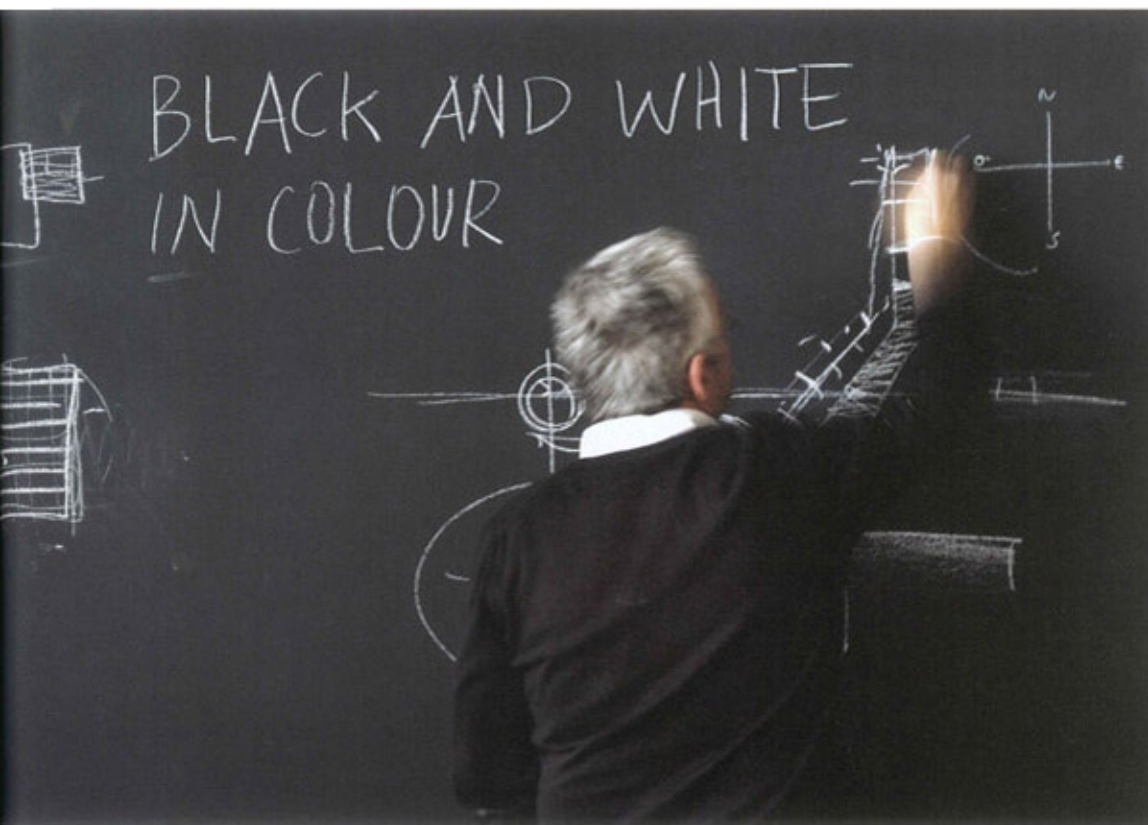 BLACK AND WHITE
IN COLOUR
N
O E
S